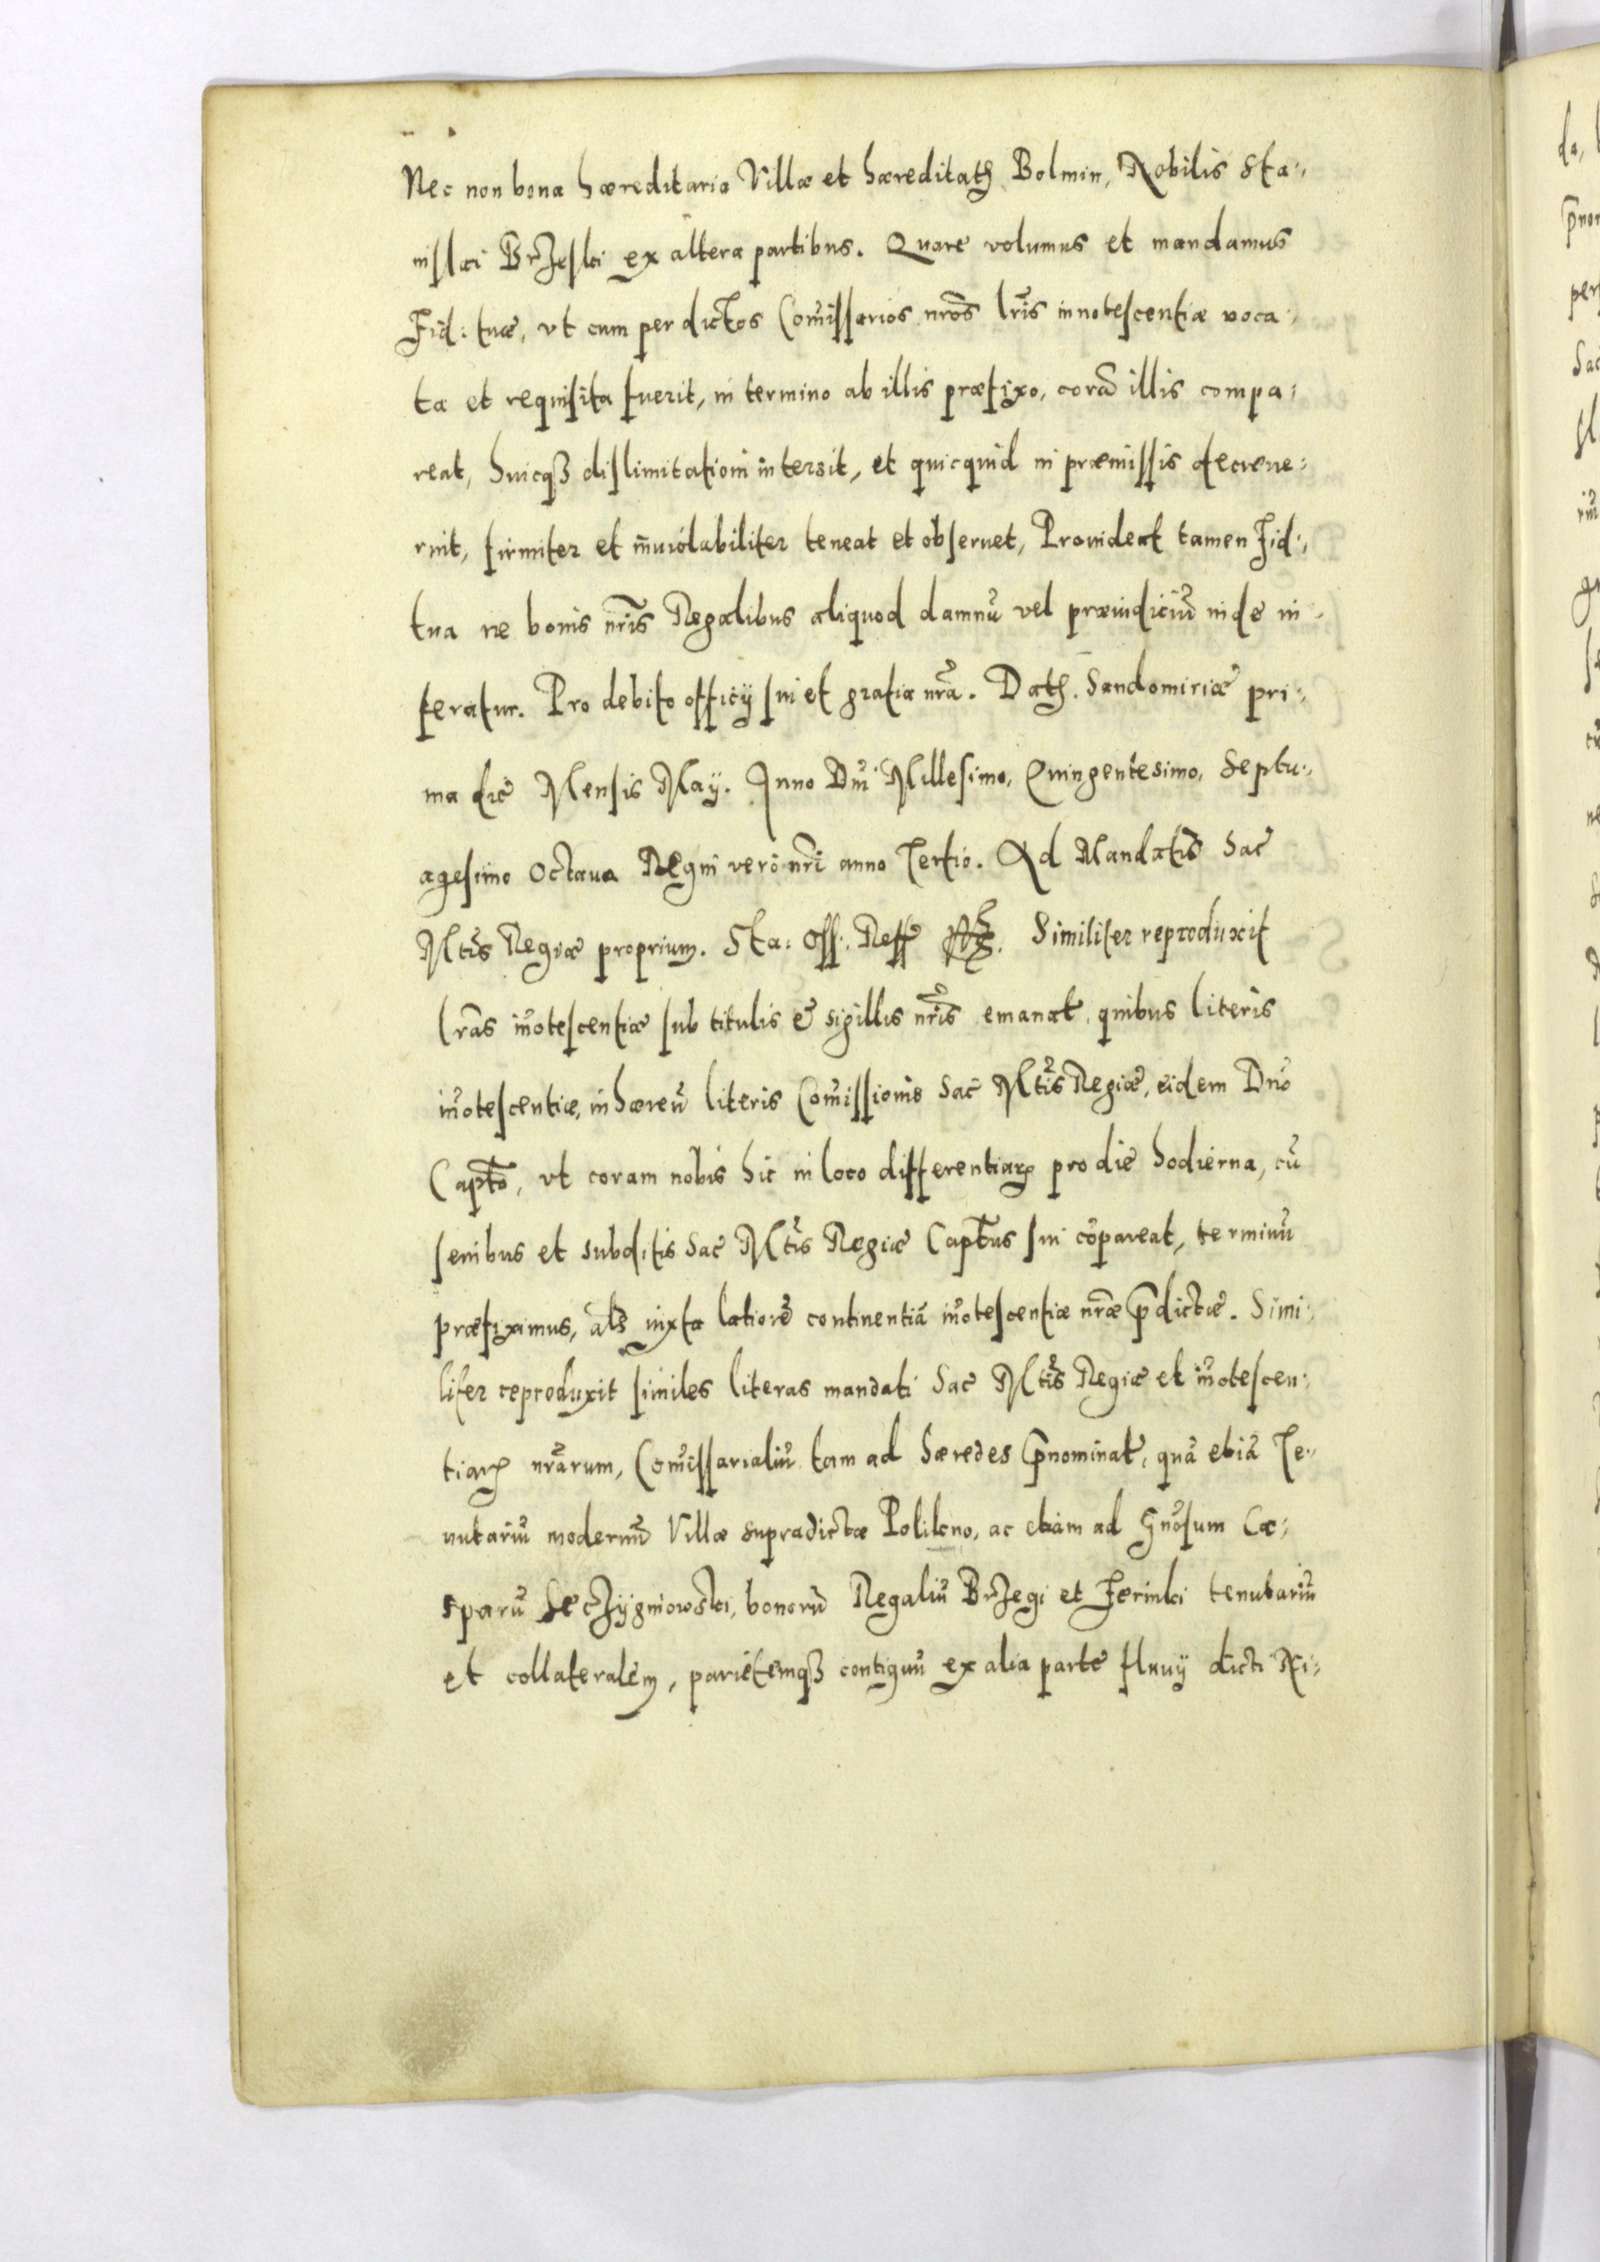 Nec non bona hæreditaria Villæ et hæreditatꝭ Bolmin, Nobilis Sta:
nislai Brzeski ex altera partibus. Quare volumus et mandamus
Fid: tuæ, vt cum per dictos Com̃issarios nr̃os lr̃is innotescentiæ voca:
ta et requisita fuerit, in termino ab illis præfixo, corã illis compa:
reat, huicqꝫ dislimitationi intersit, et quicquid in præmissis decreue:
rint, firmiter et inuiolabiliter teneat et obseruet, Prouideat tamen Fid:
tua ne bonis nr̃is Regalibus aliquod damnũ vel præiudiciũ inde in:
feratur. Pro debito officÿ sui et gratia nr̃a. Datꝭ. Sandomiriæ pri:
ma die Mensis Maÿ. Anno Dnĩ Millesimo, Quingentesimo, Septu:
agesimo Octauo Regni vero nr̃i anno Tertio. Ad Mandatũ Sac̃
Mt̃is Regiæ proprium. Sta: Oss: Reff Similiter reproduxit
lr̃as iñotescentiæ sub titulis e sigillis nr̃is emanat̃, quibus literis
iñotescentiæ, in hæreñ literis Com̃issionis Sac̃ Mt̃is Regiæ, eidem Dnõ
Captõ, vt coram nobis hic in loco differentiarꝝ pro die hodierna, cũ
senibus et subditis Sac̃ Mt̃is Regiæ Capt̃us sui cõpareat, terminũ
præfiximus, als̃ iuxta latiorẽ continentiã iñotescentiæ nr̃æ p̃dictæ. Simi:
liter reproduxit similes literas mandati Sac̃ Mt̃is Regiæ et iñotescen:
tiarꝝ nr̃arum, Com̃issarialiũ tam ad hæredes p̃nominat̃, quã etiã Te:
nutariũ modernũ Villæ supradictæ Polikno, ac etiam ad Gnõsum Ca:
sparũ Seczÿgniowski, bonorũ Regaliũ Brzegi et Zerniki tenutariũ
et collateralem, parietemqꝫ contiguũ ex alia parte fluuÿ dicti Ni: